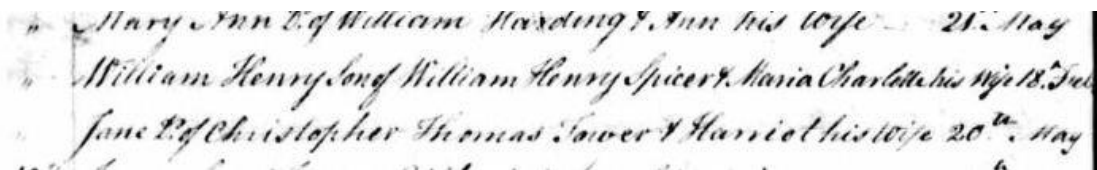 " Mary Ann D. of William Harding & Ann his Wife 21st May
" William Henry Son of William Henry Spicer & Maria Charlotte his Wife 18th
" Jane D. of Christopher Thomas Tower & Harriot his Wife 20th May